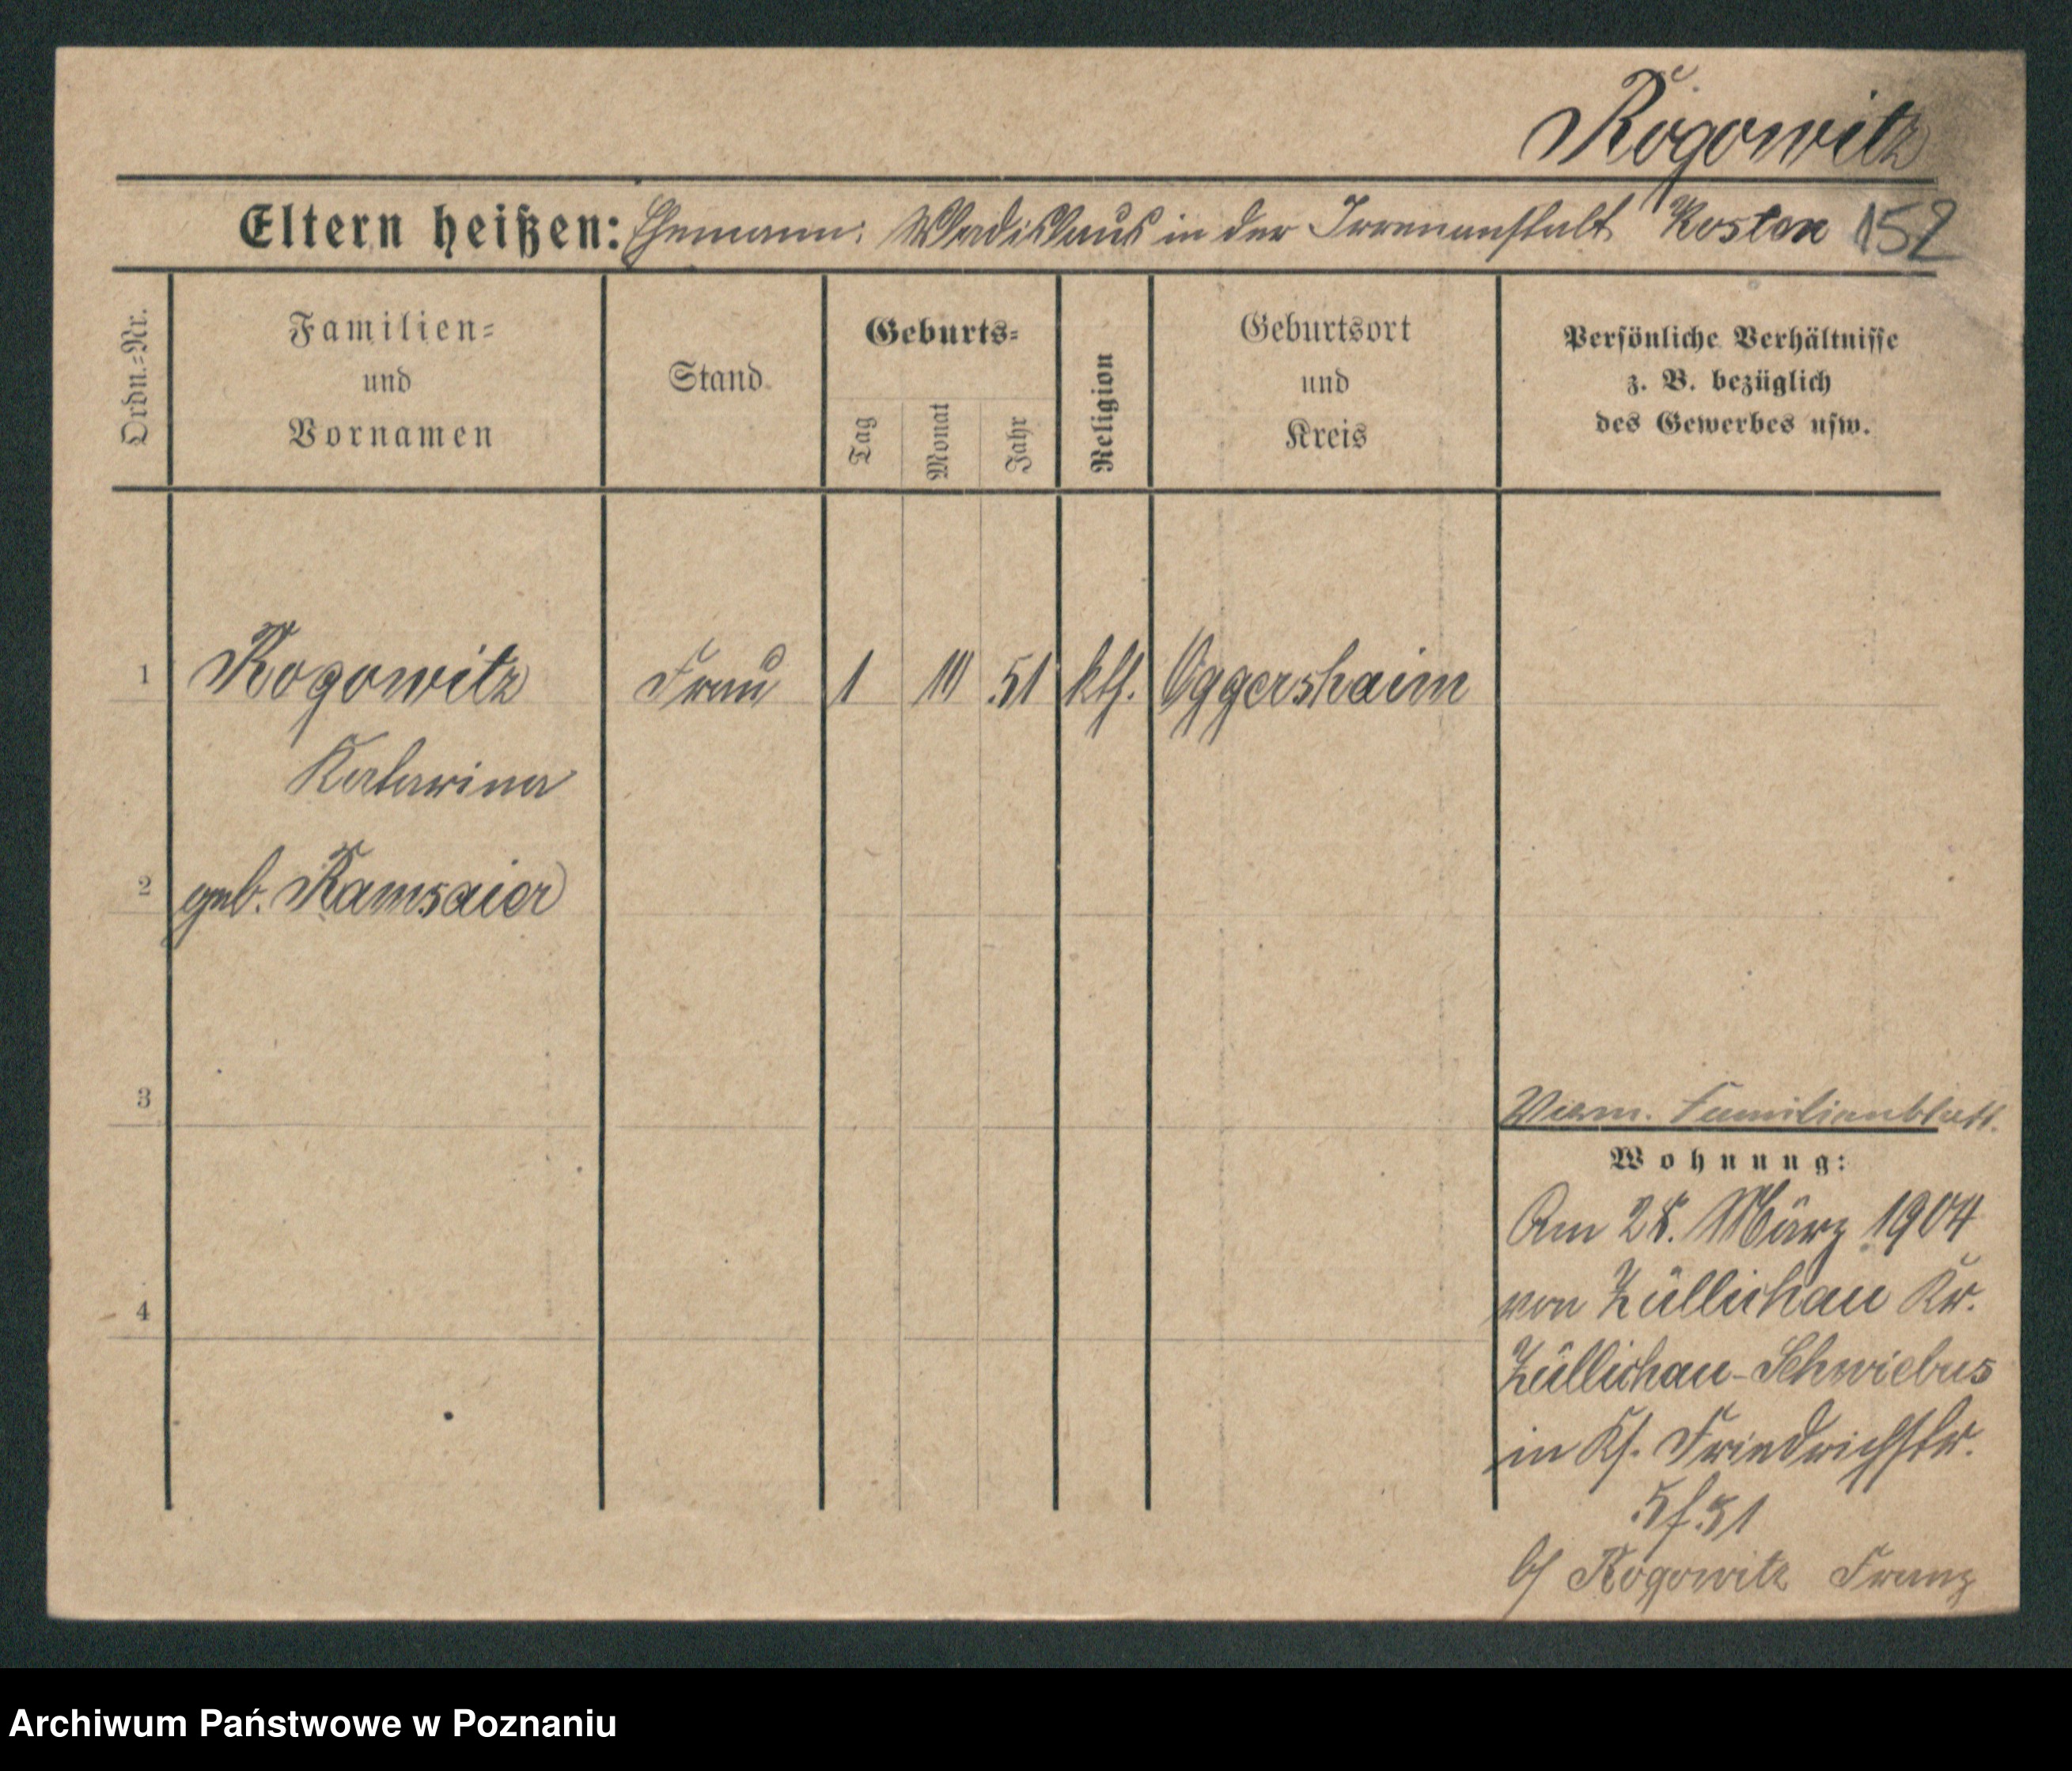 Rogowitz
Eltern heißen: Ehemann: Wladislaus in der Irrenanstalt Kosten 152
Ordn.-Nr.
Familien-
und
Vornamen
Stand
Geburts-
Tag
Monat
Jahr
Religion
Geburtsort
und
Kreis
Persönliche Verhältnisse
z. B. bezüglich
des Gewerbes usw.
1 Rogowitz Frau 1 III 51 kth. Oggershaim
Katarina
2 geb. Ramsaier
3
Familienblatt.
Wohnung:
Am 28. März 1904
von Züllichau Kr.
4
Züllichau-Schwiebus
in Friedrichstr.
51
b/ Rogowitz Franz
Archiwum Państwowe w Poznaniu